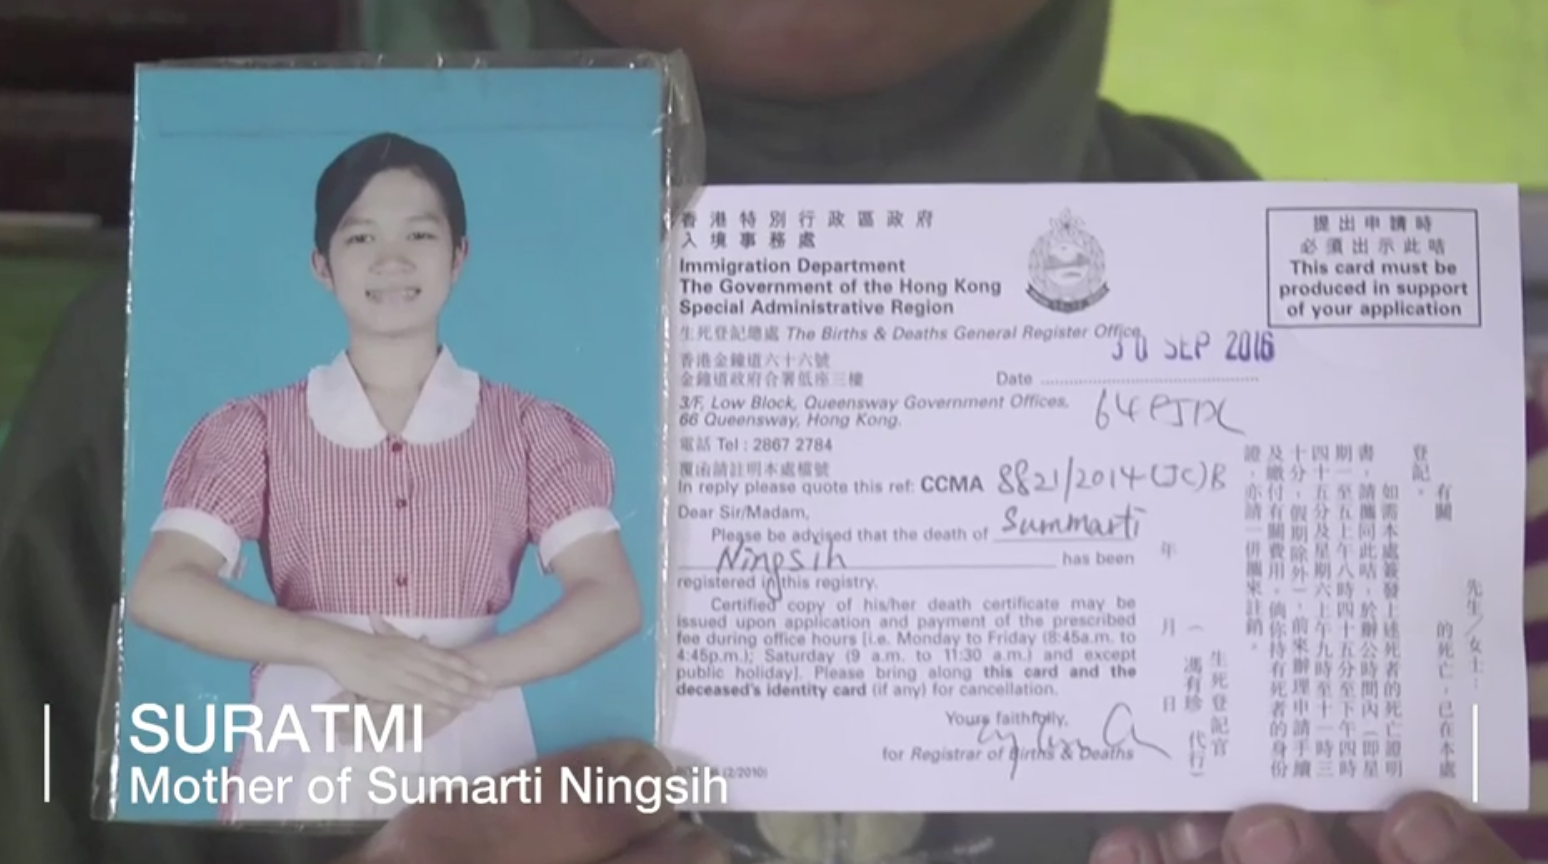 香港特別行政區政府
入境事務處
Immigration Department
The Government of the Hong Kong
Special Administrative Region
生死登記總處 The Births & Deaths General Register Office
香港金鐘道六十六號
金鐘道政府合署低座三樓
3/F, Low Block, Queensway Government Offices,
66 Queensway, Hong Kong.
電話 Tel : 2867 2784
覆函請註明本處檔號
In reply please quote this ref: CCMA 8821/2014(JC)B
提出申請時
必須出示此咭
This card must be
produced in support
of your application
30 SEP 2016
Date
Dear Sir/Madam,
Please be advised that the death of Summarti
Ningsih has been
registered in this registry.
Certified copy of his/her death certificate may be
issued upon application and payment of the prescribed
fee during office hours [i.e. Monday to Friday (8:45a.m. to
4:45p.m.); Saturday (9 a.m. to 11:30 a.m.) and except
public holiday]. Please bring along this card and the
deceased's identity card (if any) for cancellation.
Yours faithfully,
for Registrar of Births & Deaths
(2/2010)
先生/女士：
有關 的死亡，已在本處
登記。
如需本處簽發上述死者的死亡證明
書，請攜同此咭，於辦公時間內（即星
期一至五上午八時四十五分至下午四時
四十五分及星期六上午九時至十一時三
十分，假期除外），前來辦理申請手續
及繳付有關費用。倘你持有死者的身份
證，亦請一併攜來註銷。
生死登記官
（馮有珍 代行）
年 月 日
SURATMI
Mother of Sumarti Ningsih